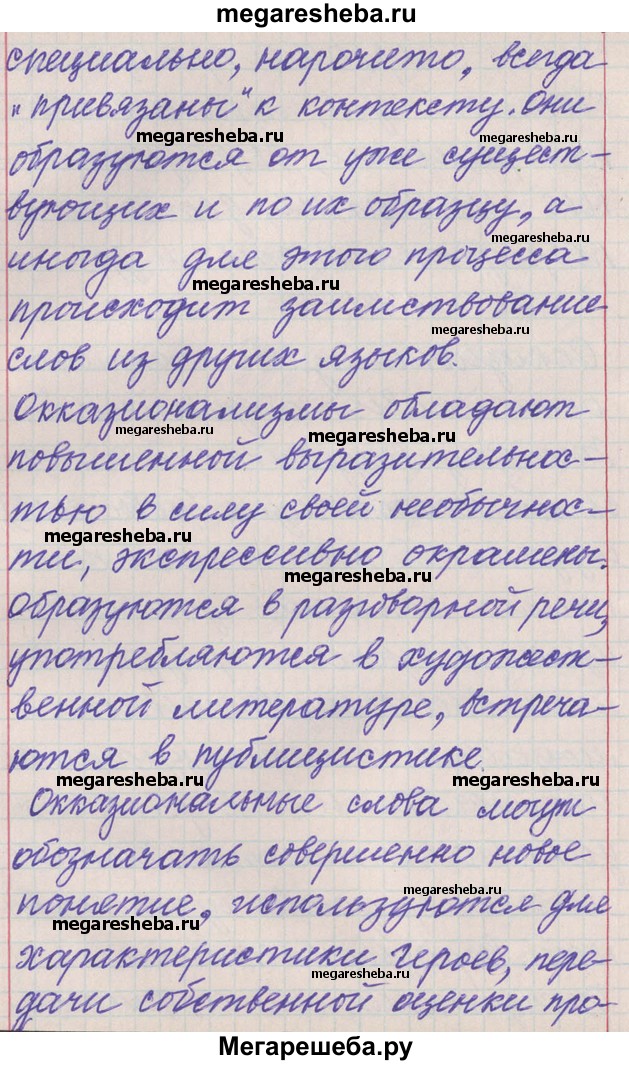 megaresheba.ru
специально, нарочито, всегда
"привязаны" к контексту. Они
megaresheba.ru
megaresheba.ru
образуются от уже сущест-
вующих и по их образцу, а
megaresheba.ru
иногда для этого процесса
megaresheba.ru
происходит заимствование
megaresheba.ru
слов из других языков.
Окказионализмы обладают
megaresheba.ru
megaresheba.ru
повышенной выразительнос-
тью в силу своей необычнос-
megaresheba.ru
ти, экспрессивно окрашены.
megaresheba.ru
Образуются в разговорной речи,
употребляются в художест-
megaresheba.ru
венной литературе, встреча-
ются в публицистике.
megaresheba.ru
megaresheba.ru
Окказиональные слова могут
обозначать совершенно новое
megaresheba.ru
понятие, используются для
характеристики героев, пере-
megaresheba.ru
дачи собственной оценки про-
Мегарешеба.ру